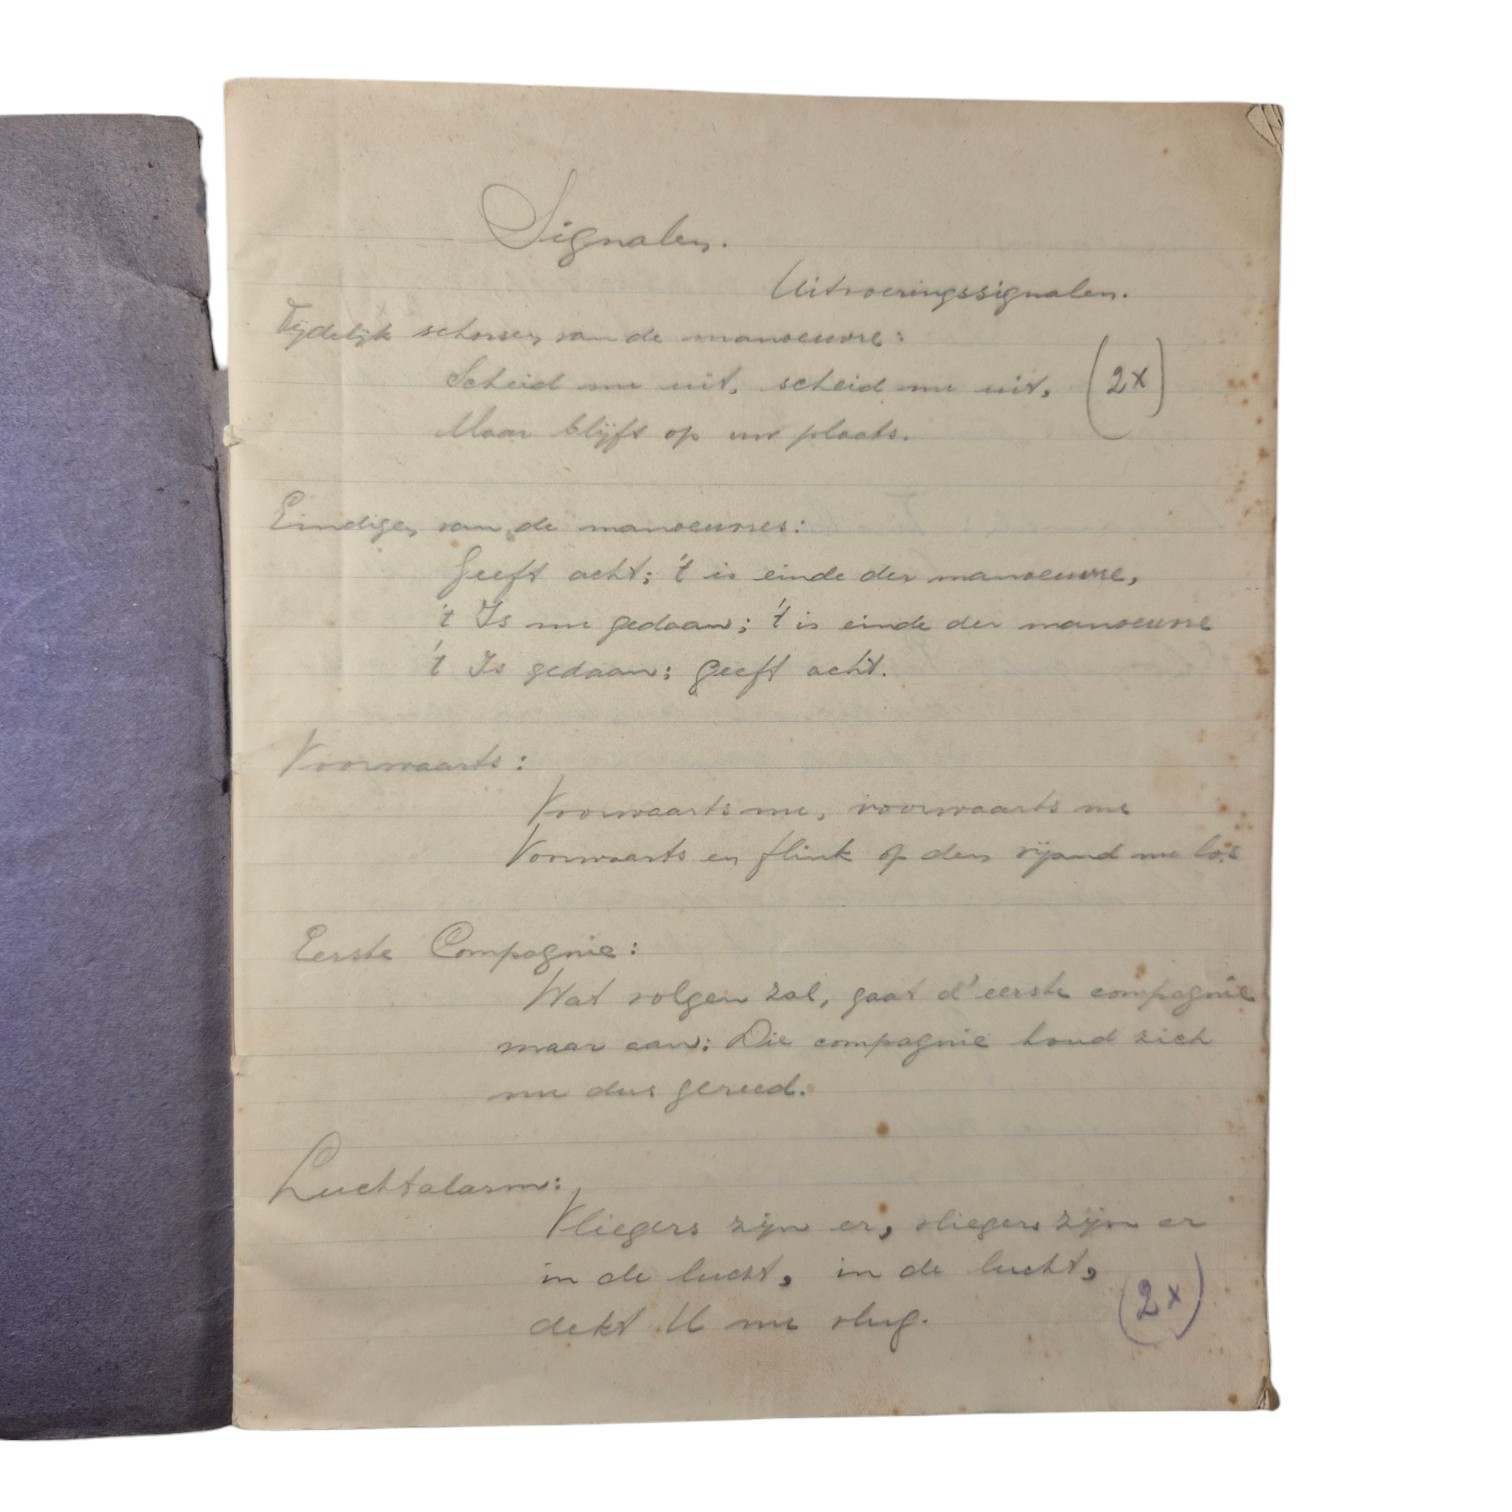 Signalen.
Uitvoeringssignalen.
Tijdelijk schorsen van de manoeuvre:
Scheid nu uit, scheid nu uit, (2x)
Maar blijft op uw plaats.
Eindigen van de manoeuvres:
Geeft acht; 't is einde der manoeuvre,
't Is nu gedaan; 't is einde der manoeuvre
't Is gedaan; geeft acht.
Voorwaarts:
Voorwaarts nu, voorwaarts nu
Voorwaarts en flink op den vijand nu los
Eerste Compagnie:
Wat volgen zal, gaat d'eerste compagnie
maar aan: Die compagnie houd zich
nu dus gereed.
Luchtalarm:
Vliegers zijn er, vliegers zijn er
in de lucht, in de lucht,
dekt U nu vlug. (2x)